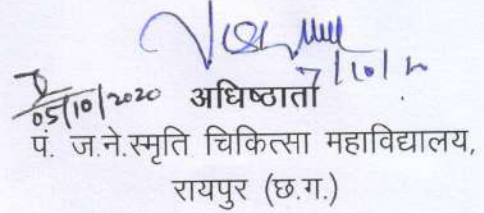 7/10/20
05/10/2020 अधिष्ठाता
पं. ज.ने.स्मृति चिकित्सा महाविद्यालय,
रायपुर (छ.ग.)